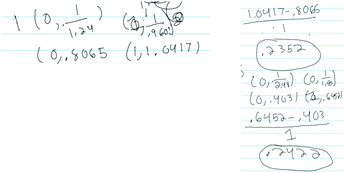 1 (0, 1/1.24) (1, 1/.960)
(0, .8065 (1, 1.0417)
1.0417-.8065
1
.2352
(0, 1/2.48) (0, 1/1.55)
(0, .403) (1, .6452)
.6452-.403
1
.2422